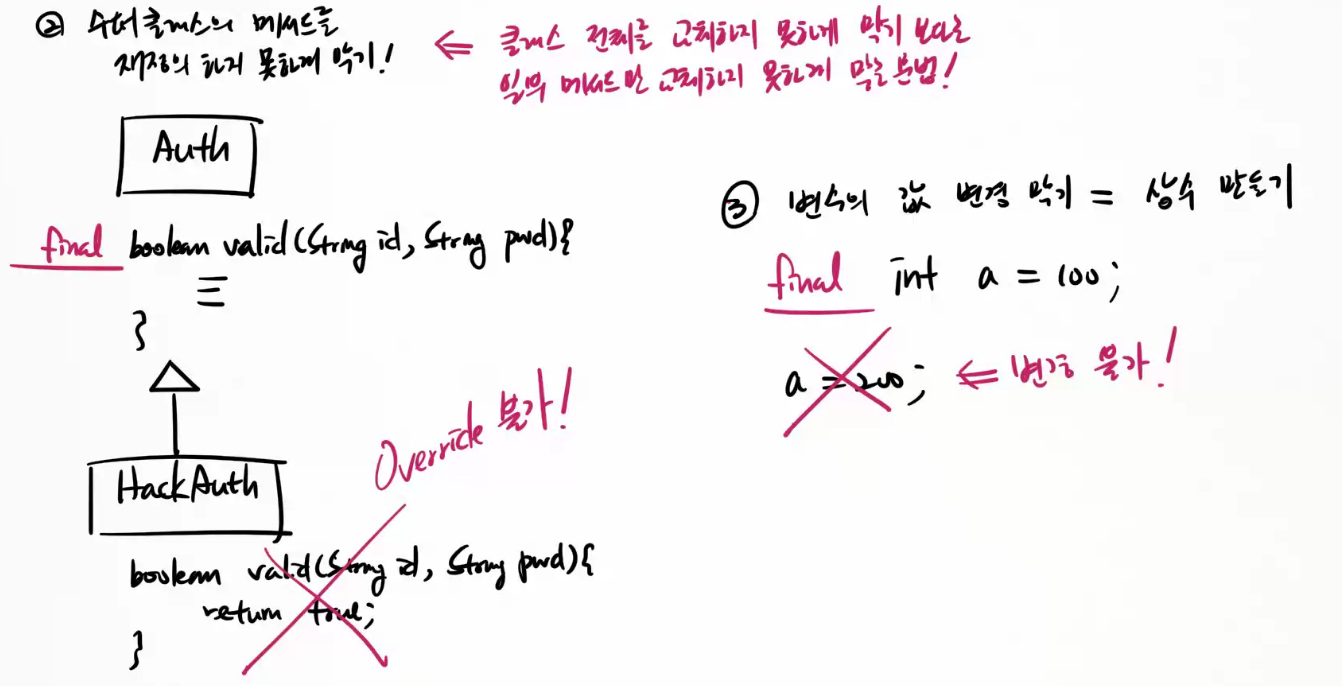 ② 수퍼클래스의 메서드를
재정의 하지 못하게 막기!
⇐ 클래스 전체를 교체하지 못하게 막기 보다는
일부 메서드만 교체하지 못하게 막는 문법!
Auth
final boolean valid(String id, String pwd){
}
HackAuth
Override 불가!
boolean valid(String id, String pwd){
return true;
}
③ 변수의 값 변경 막기 = 상수 만들기
final int a = 100;
a = 200; ⇐ 변경 불가!